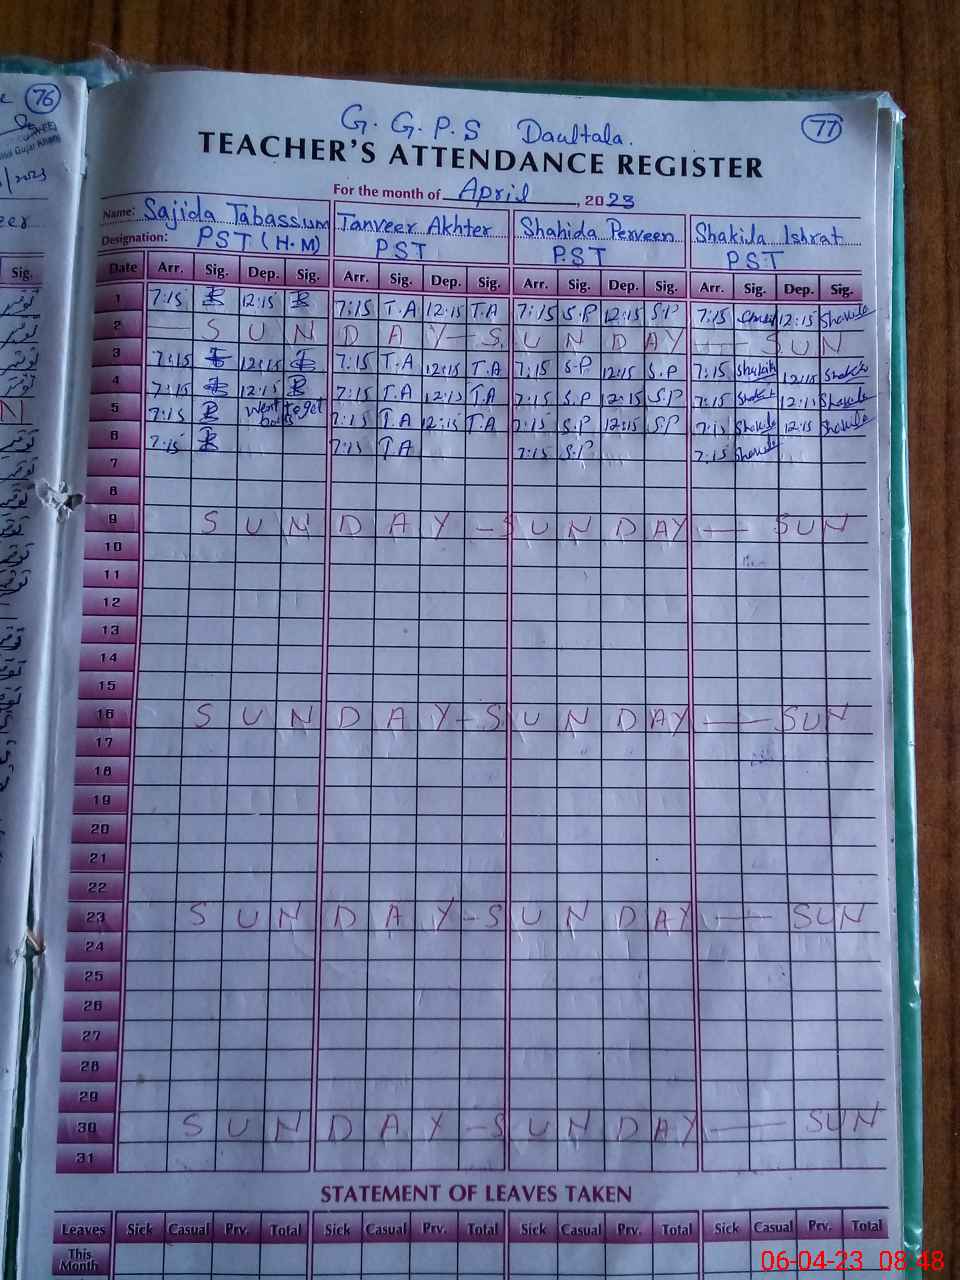 76
77
G.G.P.S Daultala.
TEACHER'S ATTENDANCE REGISTER
For the month of April, 2023
Name: Sajida Tabassum Tanveer Akhter Shahida Perveen Shakila Ishrat
Designation: PST (H.M) PST P.ST PST
Date Arr. Sig. Dep. Sig. Arr. Sig. Dep. Sig. Arr. Sig. Dep. Sig. Arr. Sig. Dep. Sig.
1 7:15 12:15 7:15 T.A 12:15 T.A 7:15 S.P 12:15 S.P 7:15 12:15 Shakila
2 SUNDAY - SUNDAY - SUN
3 7:15 12:15 7:15 T.A 12:15 T.A 7:15 S.P 12:15 S.P 7:15 Shakila 12:15 Shakila
4 7:15 12:15 7:15 T.A 12:15 T.A 7:15 S.P 12:15 S.P 7:15 Shakila 12:15 Shakila
5 7:15 went to get books 7:15 T.A 12:15 T.A 7:15 S.P 12:15 S.P 7:15 Shakila 12:15 Shakila
6 7:15 7:15 T.A 7:15 S.P 7:15 Shakila
7
8
9 SUNDAY - SUNDAY - SUN
10
11
12
13
14
15
16 SUNDAY - SUNDAY - SUN
17
18
19
20
21
22
23 SUNDAY - SUNDAY - SUN
24
25
26
27
28
29
30 SUNDAY - SUNDAY - SUN
31
STATEMENT OF LEAVES TAKEN
Leaves Sick Casual Prv. Total Sick Casual Prv. Total Sick Casual Prv. Total Sick Casual Prv. Total
This Month
06-04-23 08:48